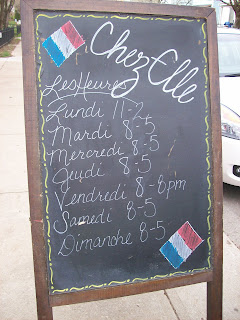 Chez Elle
Les Heures
Lundi 11-2
Mardi 8-5
Mercredi 8-5
Jeudi 8-5
Vendredi 8-8pm
Samedi 8-5
Dimanche 8-5